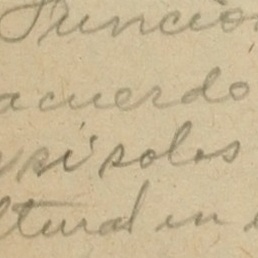 Funcion
acuerdo
si solos
ltural en